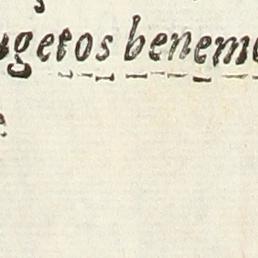 ugetos beneme